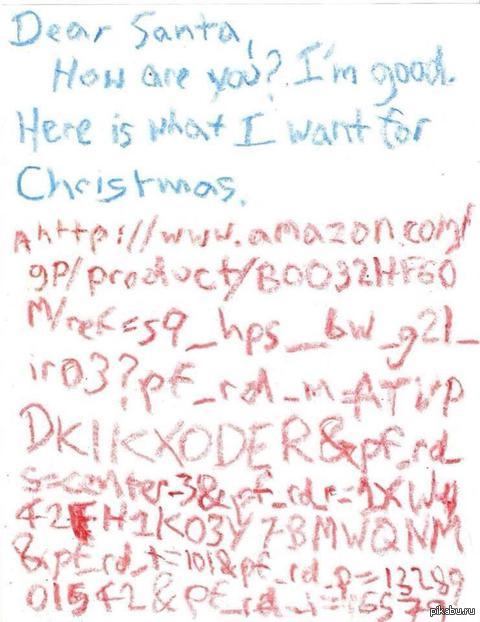 Dear Santa,
How are you? I'm good.
Here is what I want for
Christmas.
A http://www.amazon.com/
gp/product/B0032HF60
M/ref=s9_hps_bw_g21_
ir03?pf_rd_m=ATVP
DKIKX0DER&pf_rd_
s=center-3&pf_rd_r=1XWY
42FH1K03Y78MWQNM
&pf_rd_t=101&pf_rd_p=13289
01542&pf_rd_i=16579
pikabu.ru